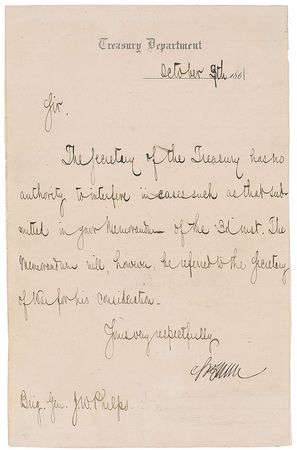 Treasury Department
October 9th 1861
Sir,
The Secretary of the Treasury has no
authority to interfere in cases such as that sub-
mitted in your Memorandum of the 3d inst. The
Memorandum will, however, be referred to the Secretary
of War for his consideration.
Yours very respectfully
Brig. Gen. J. W. Phelps.